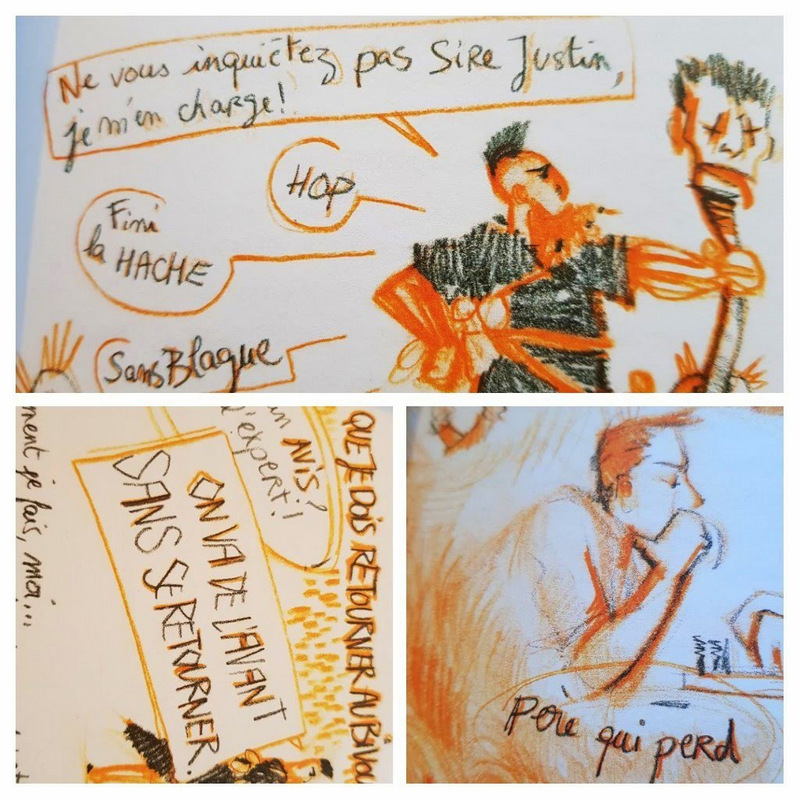 Ne vous inquiétez pas Sire Justin,
je m'en charge!
HOP
Fini
la HACHE
Sans Blague
ment je fais, moi...
ON VA DE L'AVANT
SANS SE RETOURNER.
un AVIS?
d'expert!
QUE JE DOIS RETOURNER AU
qui perd